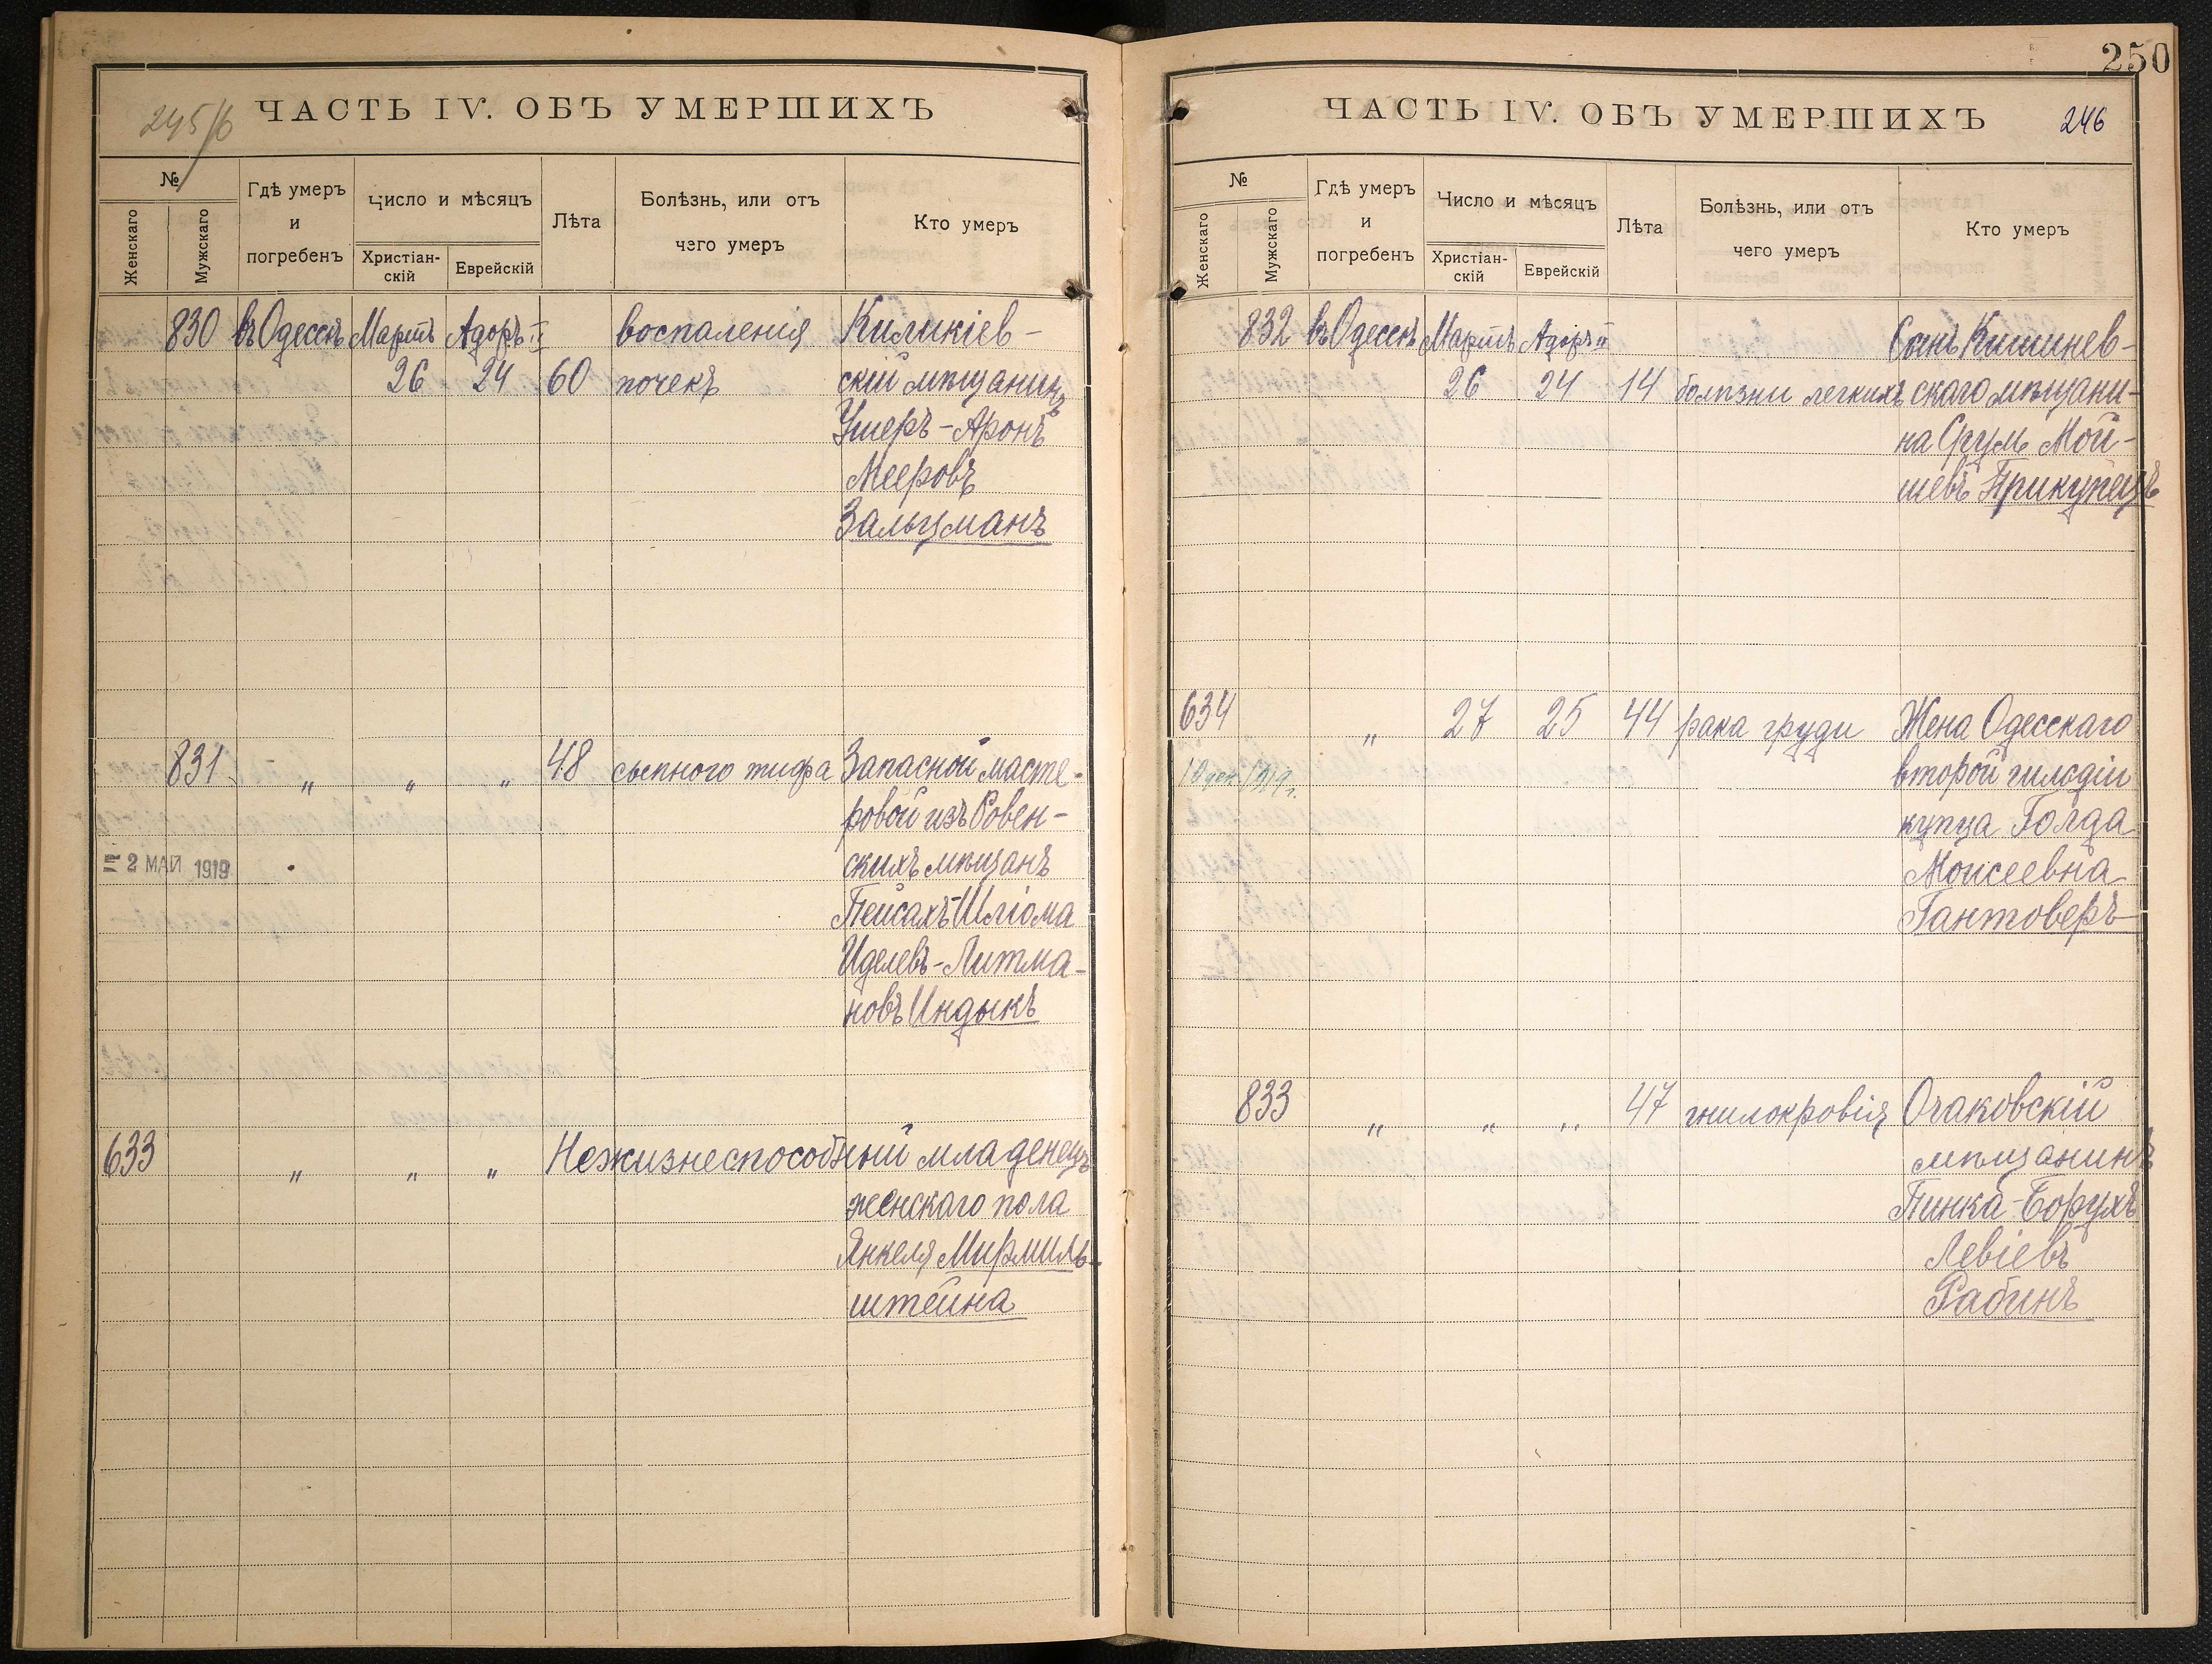 245/6
ЧАСТЬ IV. ОБЪ УМЕРШИХЪ
№
Женскаго
Мужскаго
Гдѣ умеръ
и
погребенъ
Число и мѣсяцъ
Христіан-
скій
Еврейскій
Лѣта
Болѣзнь, или отъ
чего умеръ
Кто умеръ
830 въ Одессѣ Мартъ Адоръ II воспаленія Киликіев-
26 24 60 почекъ скій мѣщанинъ
Ушеръ-Аронъ
Мееровъ
Зальцманъ
831 " " " 48 сыпного тифа Запасной масте-
ровой изъ Ровен-
скихъ мѣщанъ
2 МАЙ 1919
Пейсахъ-Шліома
Иделевъ-Литма-
новъ Индыкъ
633 " " " Нежизнеспособный младенецъ
женскаго пола
Янкеля Мирмиль-
штейна
250
ЧАСТЬ IV. ОБЪ УМЕРШИХЪ
246
№
Женскаго
Мужскаго
Гдѣ умеръ
и
погребенъ
Число и мѣсяцъ
Христіан-
скій
Еврейскій
Лѣта
Болѣзнь, или отъ
чего умеръ
Кто умеръ
832 въ Одессѣ Мартъ Адоръ II Сынъ Кишинев-
26 24 14 болѣзни легкихъ скаго мѣщани-
на Сруль Мой-
шевъ Прикупецъ
634 " 27 25 44 рака груди Жена Одесскаго
второй гильдіи
1919г.
купца Голда
Моисеевна
Гантоверъ
833 " " " 47 гнилокровія Очаковскій
мѣщанинъ
Пинка-Борухъ
Левіевъ
Рабинъ